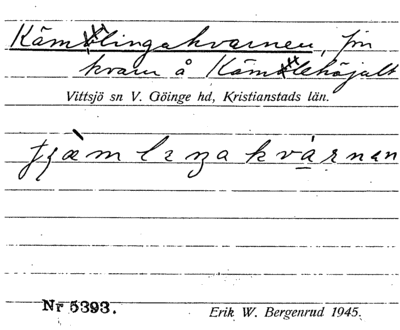 Kämlingakvarnen, fin
kvarn å Kämlehöjalt
Vittsjö sn V. Göinge hd, Kristianstads län.
kvàrnan
Nr 5393.
Erik W. Bergenrud 1945.